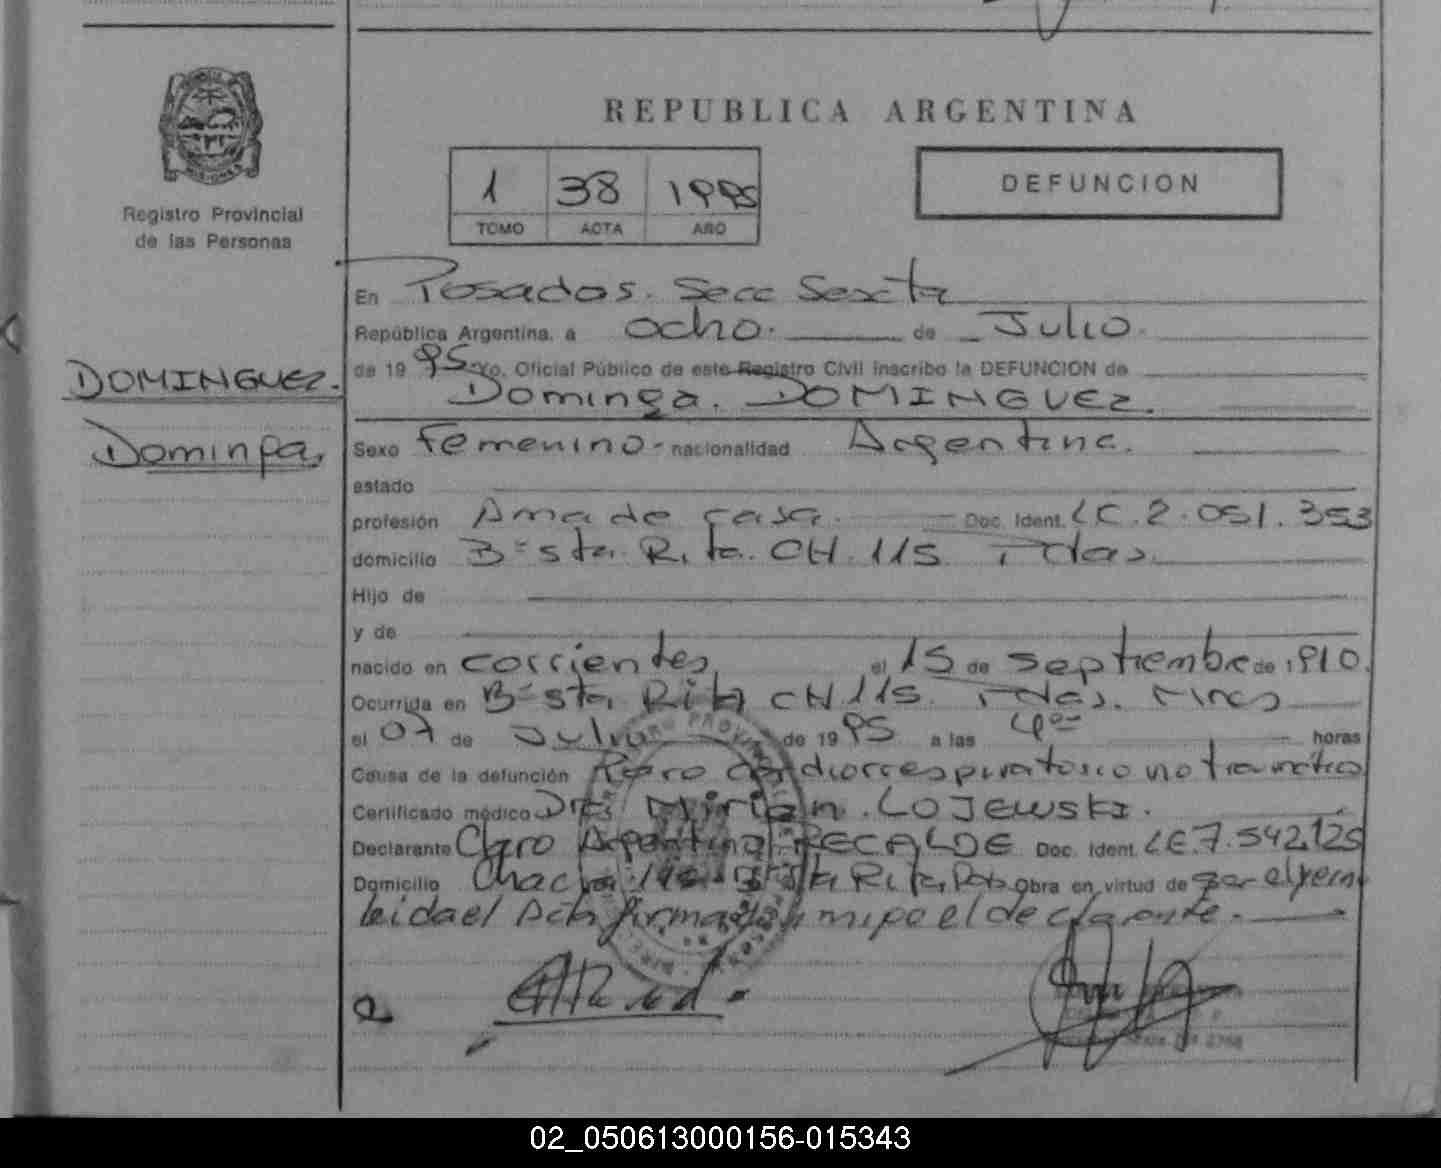 REPUBLICA ARGENTINA
1 38 1995
TOMO ACTA AÑO
DEFUNCION
Registro Provincial
de las Personas
DOMINGUEZ.
Dominga,
En Posadas. Secc Sexta
República Argentina, a ocho. de Julio.
de 1995. Yo, Oficial Público de este Registro Civil inscribo la DEFUNCION de
Dominga. DOMINGUEZ.
Sexo Femenino - nacionalidad Argentina.
estado
profesión Ama de casa. Doc. Ident. LC.2.051.353
domicilio Bº Sta. Rita. CH.115. Pdas.
Hijo de
y de
nacido en Corrientes el 15 de septiembre de 1910.
Ocurrida en Bº Sta Rita CH 115. Pdas. Mnes
el 07 de Julio de 1995 a las 4 horas
Causa de la defunción Paro cardiorrespiratorio no traumático
Certificado médico Dra. Mirian. LOJEWSKI.
Declarante Claro Argentino RECALDE Doc. Ident. LE.7.542.125
Domicilio Chacra Bº Sta Rita, Pdas Obra en virtud de ser el
Leida el Acta firma el declarante.
02_050613000156-015343